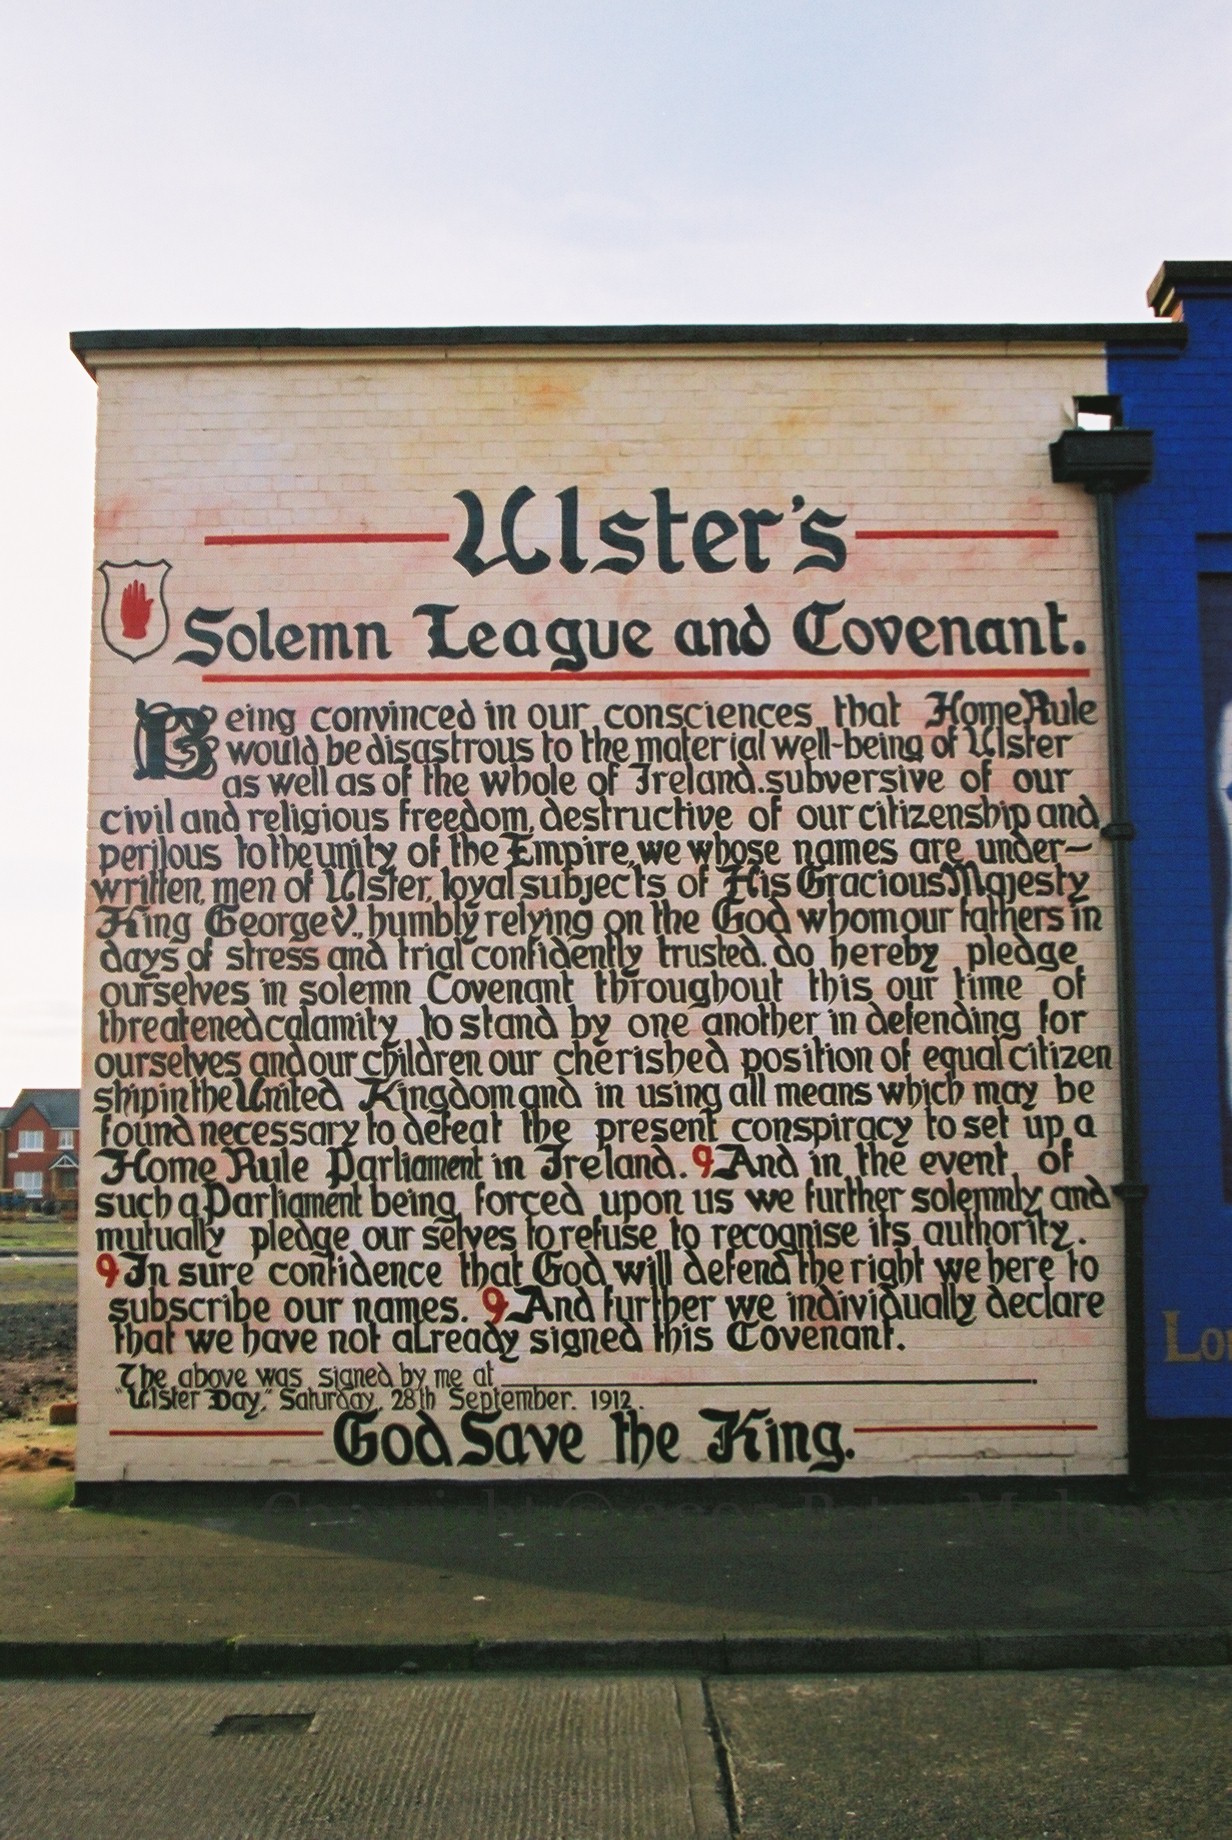 Ulster's
Solemn League and Covenant.
Being convinced in our consciences that Home Rule
would be disastrous to the material well-being of Ulster
as well as of the whole of Ireland. subversive of our
civil and religious freedom, destructive of our citizenship and
perilous to the unity of the Empire, we whose names are under-
written, men of Ulster, loyal subjects of His Gracious Majesty
King George V., humbly relying on the God whom our fathers in
days of stress and trial confidently trusted. do hereby pledge
ourselves in solemn Covenant throughout this our time of
threatened calamity to stand by one another in defending for
ourselves and our children our cherished position of equal citizen
ship in the United Kingdom and in using all means which may be
found necessary to defeat the present conspiracy to set up a
Home Rule Parliament in Ireland. 9 And in the event of
such a Parliament being forced upon us we further solemnly and
mutually pledge our selves to refuse to recognise its authority.
9 In sure confidence that God will defend the right we here to
subscribe our names. 9 And further we individually declare
that we have not aLready signed this Covenant.
The above was signed by me at
"Ulster Day," Saturday, 28th September. 1912.
God Save the King.
Copyright © Peter Moloney